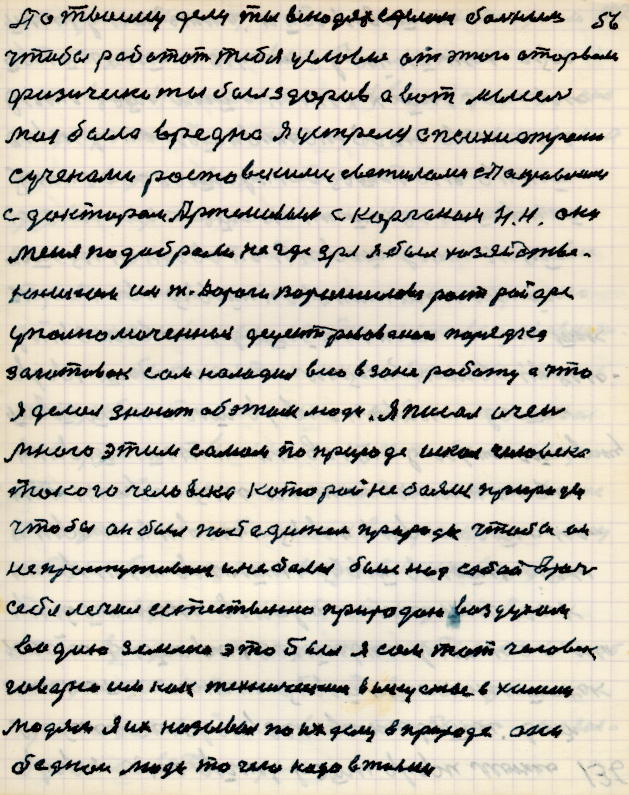 По твоему делу ты в людях сделан больным 56
чтобы работат тебя условие от этого оторвали
физически ты был здоров а вот мысел
моя была вредна Я устрелся с психиатрами
с учеными ростовскими светилами с
с доктором Артемовым с Корганом Н.Н. они
меня подобрали не где зря я был хозяйстве-
нником им ж. дороги Ворошилова рост рай аре
уполномоченным децентрлованого порядка
заготовок сам наладил всю в зоне работу а что
я делал знают об этом люди. Я писал очен
много этим самым по природе искал человека
такого человека которой не боялся природы
чтобы он был победителем природы чтобы он
не простуживался и не болел был над собой врач
себя лечил естественно природою воздухом
водою землею это был я сам тот человек
говорю им как техническим в искустве в химии
людям я их называл по их делу в природе они
бедном люди то чего надо